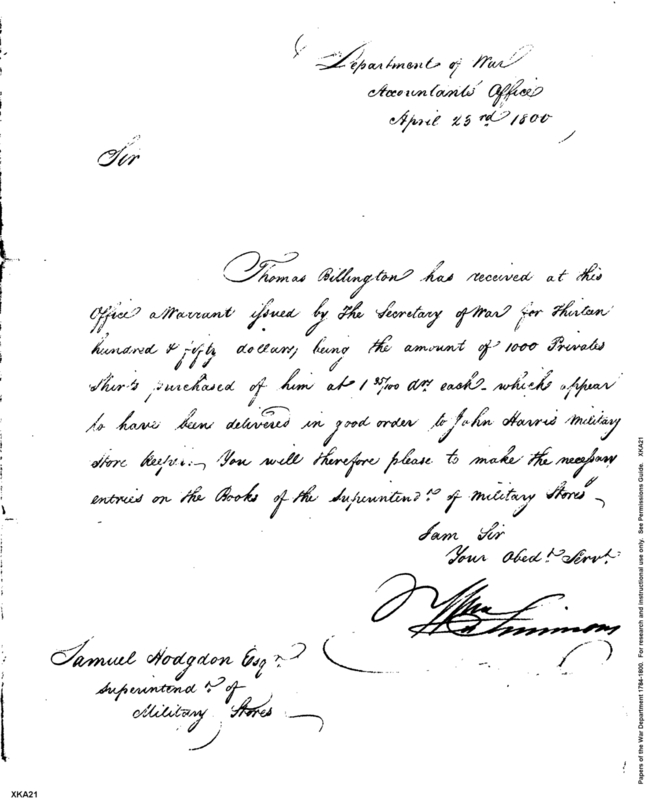 Department of War
Accountants' Office
April 23rd 1800
Sir
Thomas Billington has received at this
Office a Warrant issued by the Secretary of War for Thirteen
hundred & fifty dollars, being the amount of 1000 Privates
Shirts purchased of him at 1 35/100 drs each - which appear
to have been delivered in good order to John Harris Military
Store Keeper. You will therefore please to make the necessary
entries on the Books of the Superintendt of Military Stores
I am Sir
Your Obedt Servt
Wm Simmons
Samuel Hodgdon Esqr
Superintendt of
Military Stores
XKA21
Papers of the War Department 1784-1800. For research and instructional use only. See Permissions Guide. XKA21